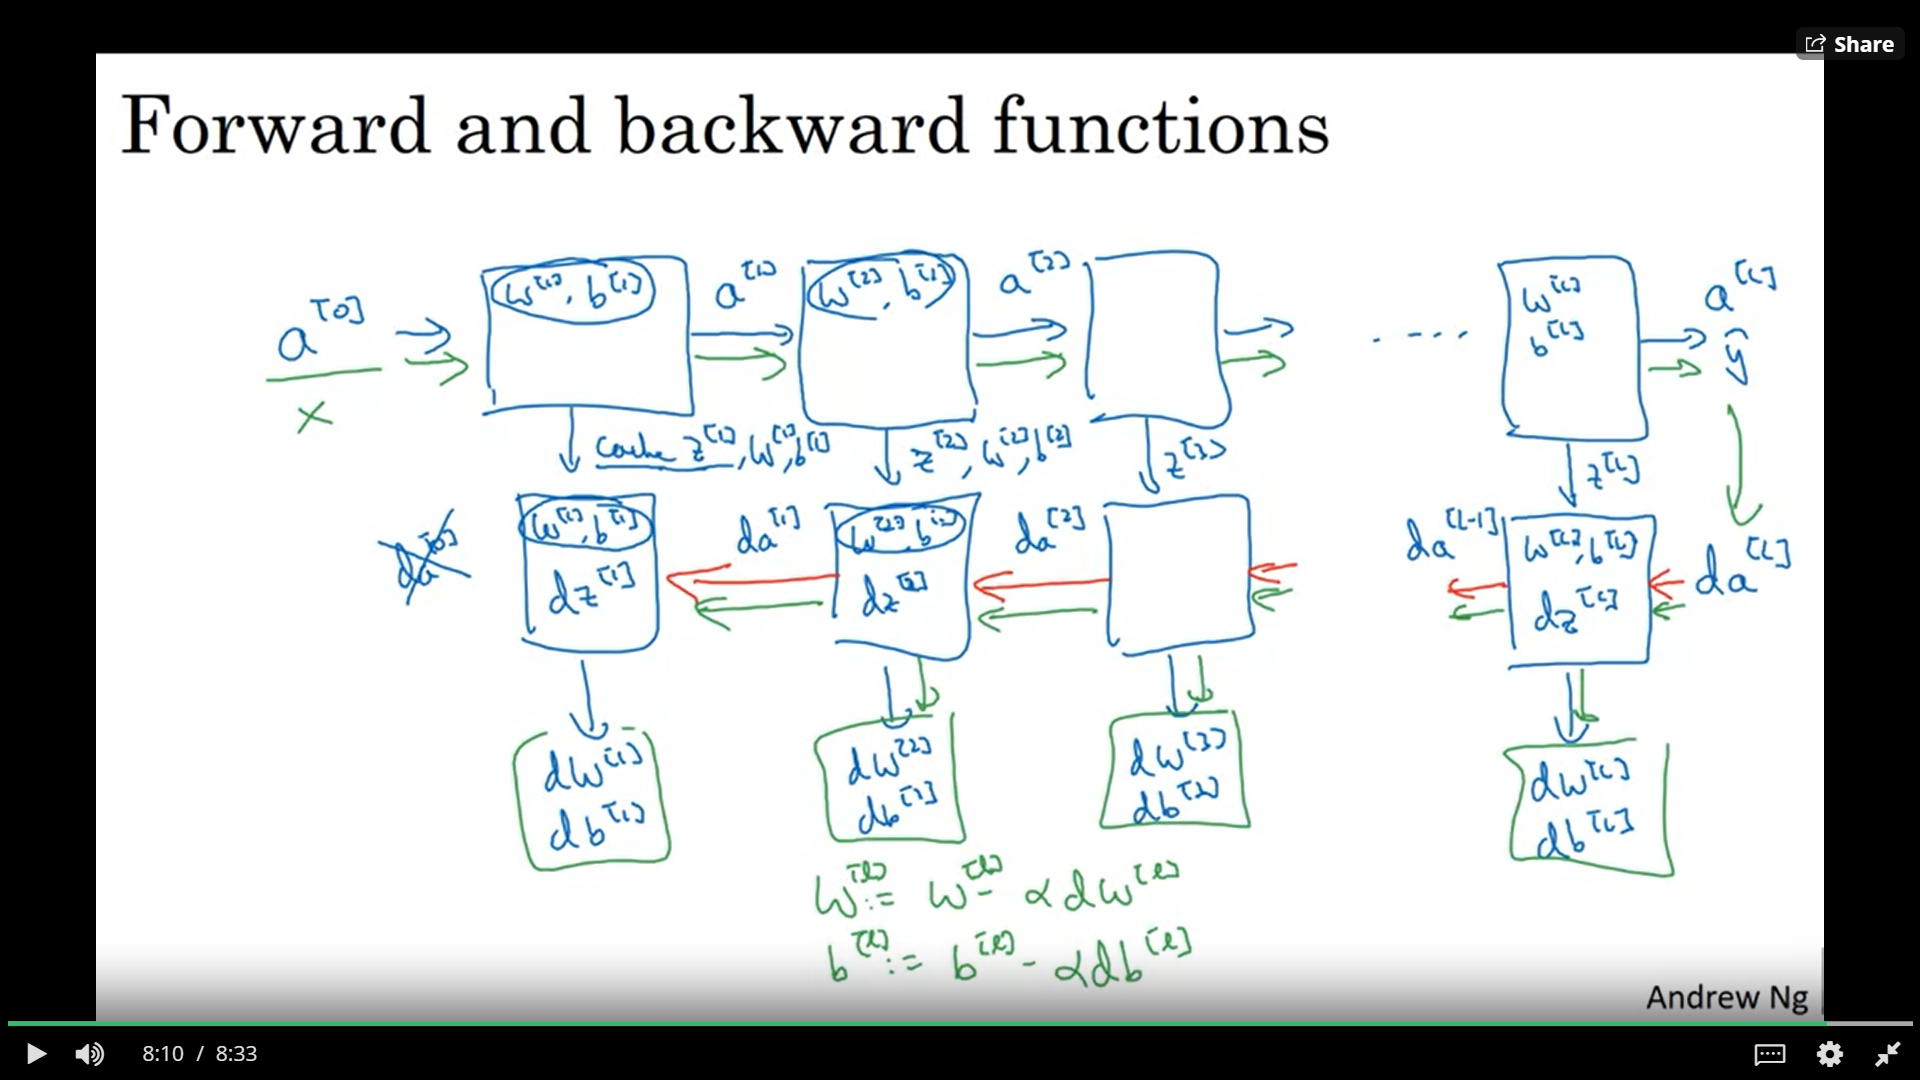 Share
Forward and backward functions
a^[0] w^[1], b^[1] a^[1] w^[2], b^[1] a^[2] .... w^[L] a^[L]
x b^[L] ŷ
cache z^[1], w^[1], b^[1] z^[2], w^[2], b^[2] z^[3] z^[L]
da^[0] w^[1], b^[1] da^[1] w^[2], b^[2] da^[2] da^[L-1] w^[L], b^[L] da^[L]
dz^[1] dz^[2] dz^[L]
dw^[1] dw^[2] dw^[3] dw^[L]
db^[1] db^[1] db^[L]
w^[l] := w^[l] - α dw^[l]
b^[l] := b^[l] - α db^[l]
Andrew Ng
8:10 / 8:33